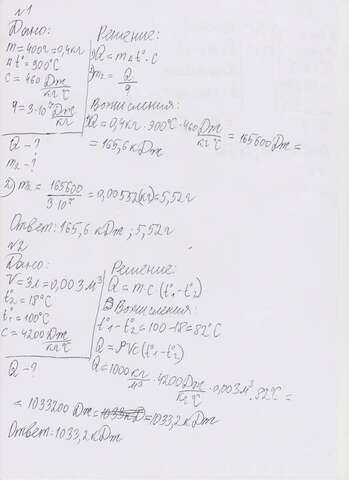 №1
Дано:
m=400г=0,4кг
Δt°=900°C
c=460 Дж/кг°C
q=3·10⁷ Дж/кг
Q-?
m₂-?
Решение:
1) Q=mΔt°·c
2) m₂=Q/q
Вычисления:
1) Q=0,4кг·900°C·460 Дж/кг°C=165600Дж=
=165,6кДж
2) m₂=165600/3·10⁷=0,00552(кг)=5,52г
Ответ: 165,6 кДж; 5,52г
№2
Дано:
V=3л=0,003м³
t°₂=18°C
t°₁=100°C
c=4200 Дж/кг°C
Q-?
Решение:
Q=m·c(t°₁-t°₂)
Вычисления:
t°₁-t°₂=100-18=82°C
Q=ρVc(t°₁-t°₂)
Q=1000 кг/м³·4200 Дж/кг°C·0,003м³·82°C=
=1033200 Дж=1033,2кДж
Ответ: 1033,2 кДж